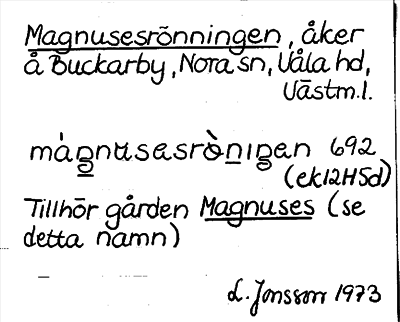 Magnusesrönningen, åker
å Buckarby, Nora sn, Våla hd,
Västm.l.
màgnusasrònıgan 692
(ek12H5d)
Tillhör gården Magnuses (se
detta namn)
L. Jonsson 1973